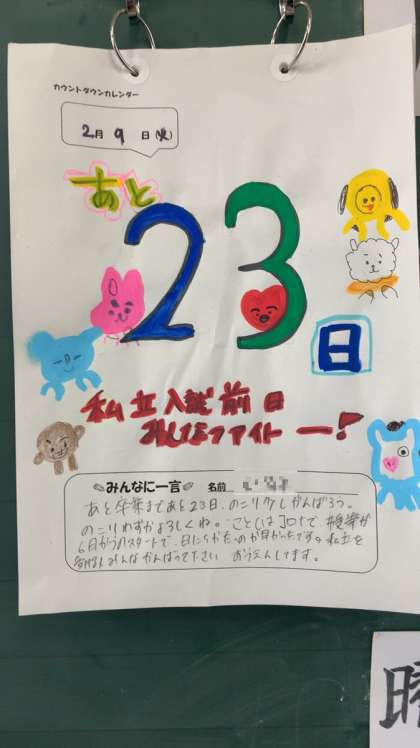 カウントダウンカレンダー
2月9日(火)
あと
23
日
私立入試前日
みんなファイトー!
みんなに一言 名前
あと卒業まであと23日、のこり少しがんばろう。
のこりわずかよろしくね。ことしはコロナで授業が
6日からのスタートで、日にちがたつのが早かったです。私立を
受ける人みんながんばって下さい おうえんしてます。
晴